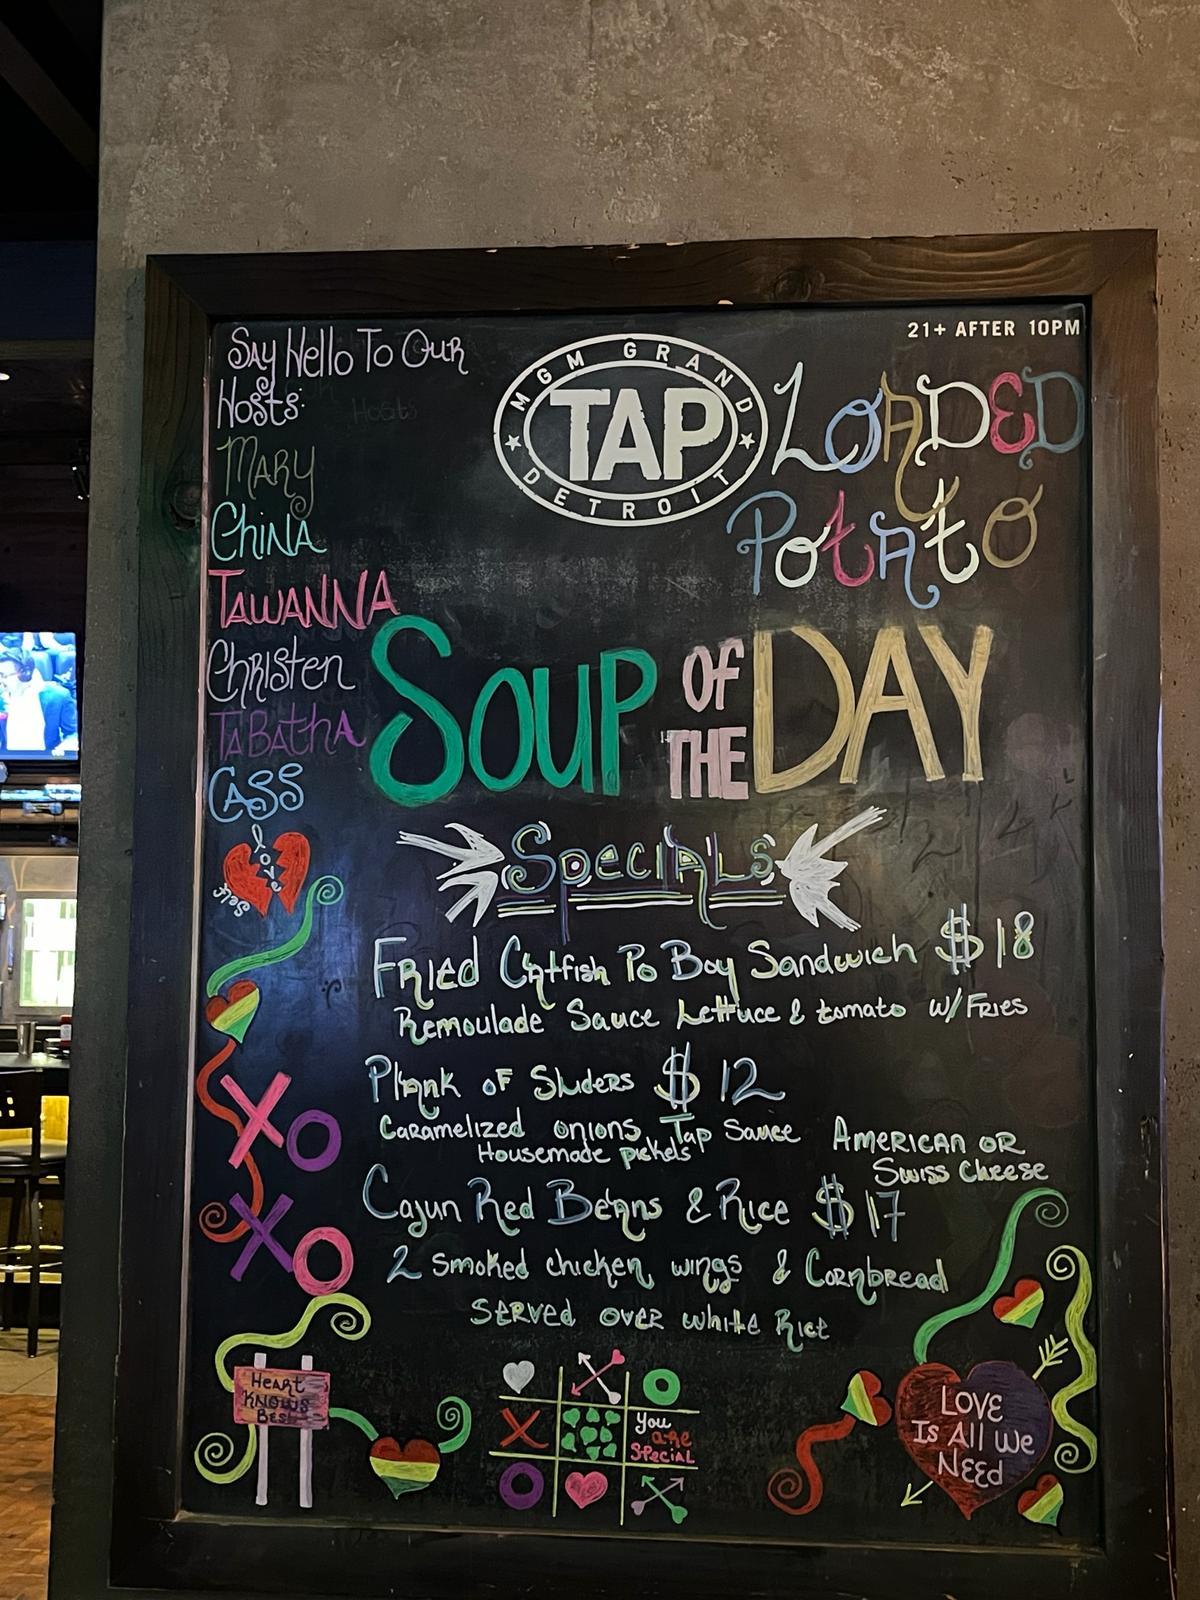 21+ AFTER 10PM
Say Hello To Our
Hosts:
Hosts
Mary
China
Tawanna
Christen
TaBatha
Cass
MGM GRAND
TAP
DETROIT
Loaded
Potato
Soup of the Day
Love
Self
Specials
Fried Catfish Po Boy Sandwich $18
Remoulade Sauce Lettuce & tomato w/ Fries
Plank of Sliders $12
Caramelized onions Tap Sauce American or
Housemade pickels Swiss Cheese
Cajun Red Beans & Rice $17
2 smoked chicken wings & Cornbread
Served over white Rice
XO
XO
Heart
Knows
Best
X
O
You
are
Special
O
Love
Is All We
Need